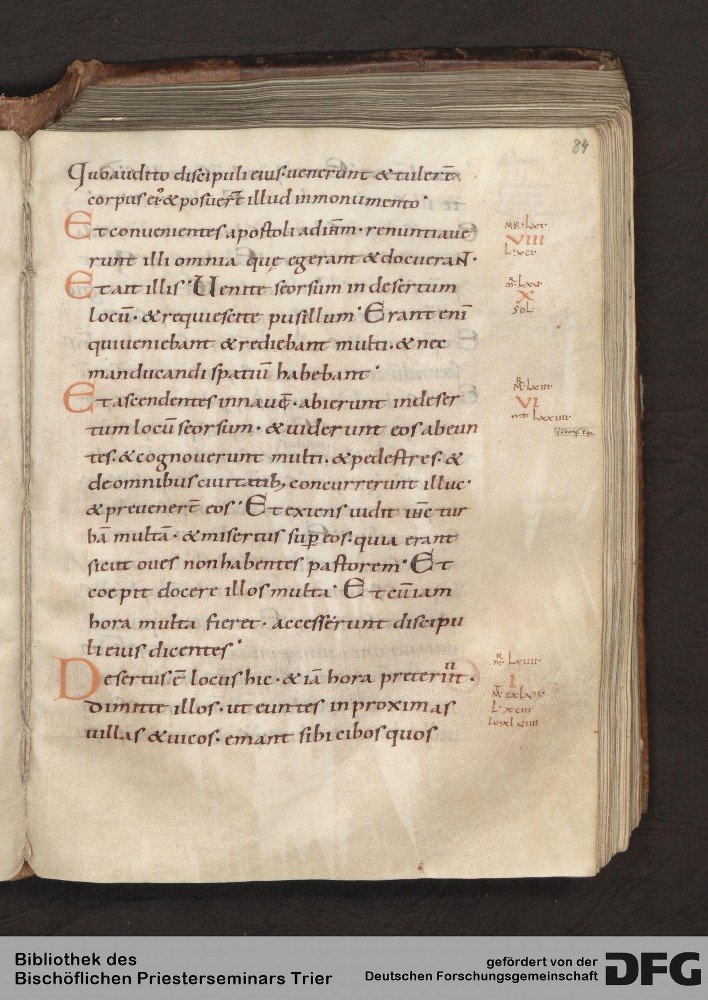 84
Quo audito discipuli eius· uenerunt & tulert̄
corpus ei᾽ & posuer̄t illud in monumento·
Et conuenientes apostoli ad ih̄m· renuntiaue
runt illi omnia que egerant & docuerant·
Et ait illis· Uenite seorsum in desertum
locū· & requiescite pusillum· Erant enī
qui ueniebant & rediebant multi· & nec
manducandi spatiū habebant·
Et ascendentes in nauē· abierunt in deser
tum locū seorsum· & uiderunt eos abeun
tes· & cognouerunt multi· & pedestres· &
de omnibus ciuitatib; concurrerunt illuc·
& preuenert̄ eos· Et exiens uidit ih̄c tur
bā multā· & misertus sup eos· quia erant
sicut oues non habentes pastorem· Et
coepit docere illos multa· Et cū iam
hora multa fieret· accesserunt discipu
li eius dicentes·
Desertus ē locus hic· & iā hora preteriit·
dimitte illos· ut euntes in proximas
uillas & uicos· emant sibi cibos quos
VIII
X
VI
I
Bibliothek des
Bischöflichen Priesterseminars Trier
gefördert von der
Deutschen Forschungsgemeinschaft
DFG